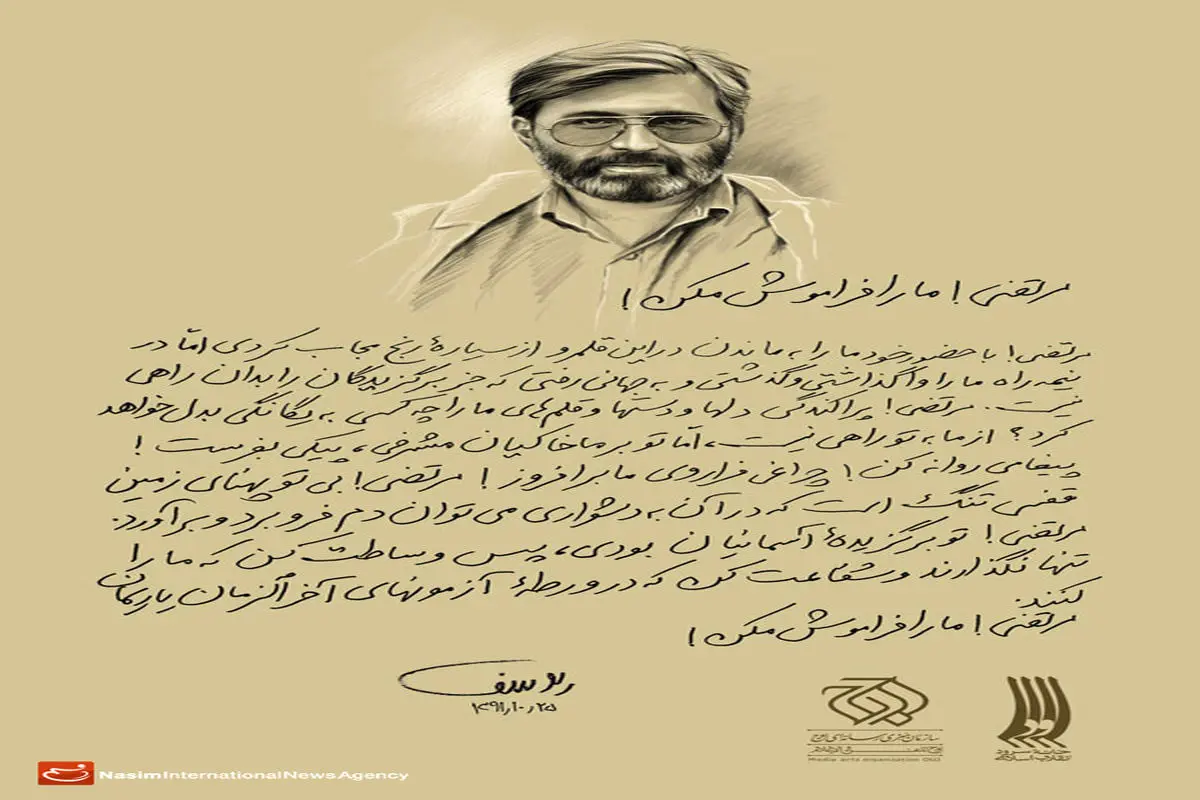 مرتضی! ما را فراموش مکن!
مرتضی! با حضور خود ما را به ماندن در این قلمرو از سیارهٔ رنج مجاب کردی امّا در
نیمه راه ما را واگذاشتی و گذشتی و به جهانی رفتی که جز برگزیدگان را بدان راهی
نیست. مرتضی! پراکندگی دلها و دستها و قلم‌های ما را چه کسی به یگانگی بدل خواهد
کرد؟ از ما به تو راهی نیست، امّا تو بر ما خاکیان مشرفی، پیکی بفرست!
پیغامی روانه کن! چراغی فراروی ما برافروز! مرتضی! بی تو پهنای زمین
قفسی تنگ است که در آن به دشواری می‌توان دم فرو برد و برآورد.
مرتضی! تو برگزیدهٔ آسمانیان بودی، پس وساطت کن که ما را
تنها نگذارند و شفاعت کن که در ورطهٔ آزمونهای آخرالزمان یاریمان
کنند.
مرتضی! ما را فراموش مکن!
یوسف
۲۵ر۱۰ر۱۳۹۱
اوج
سازمان هنری رسانه‌ای اوج
Media arts organization OWJ
خانه سرود
انقلاب اسلامی
NasimInternationalNewsAgency